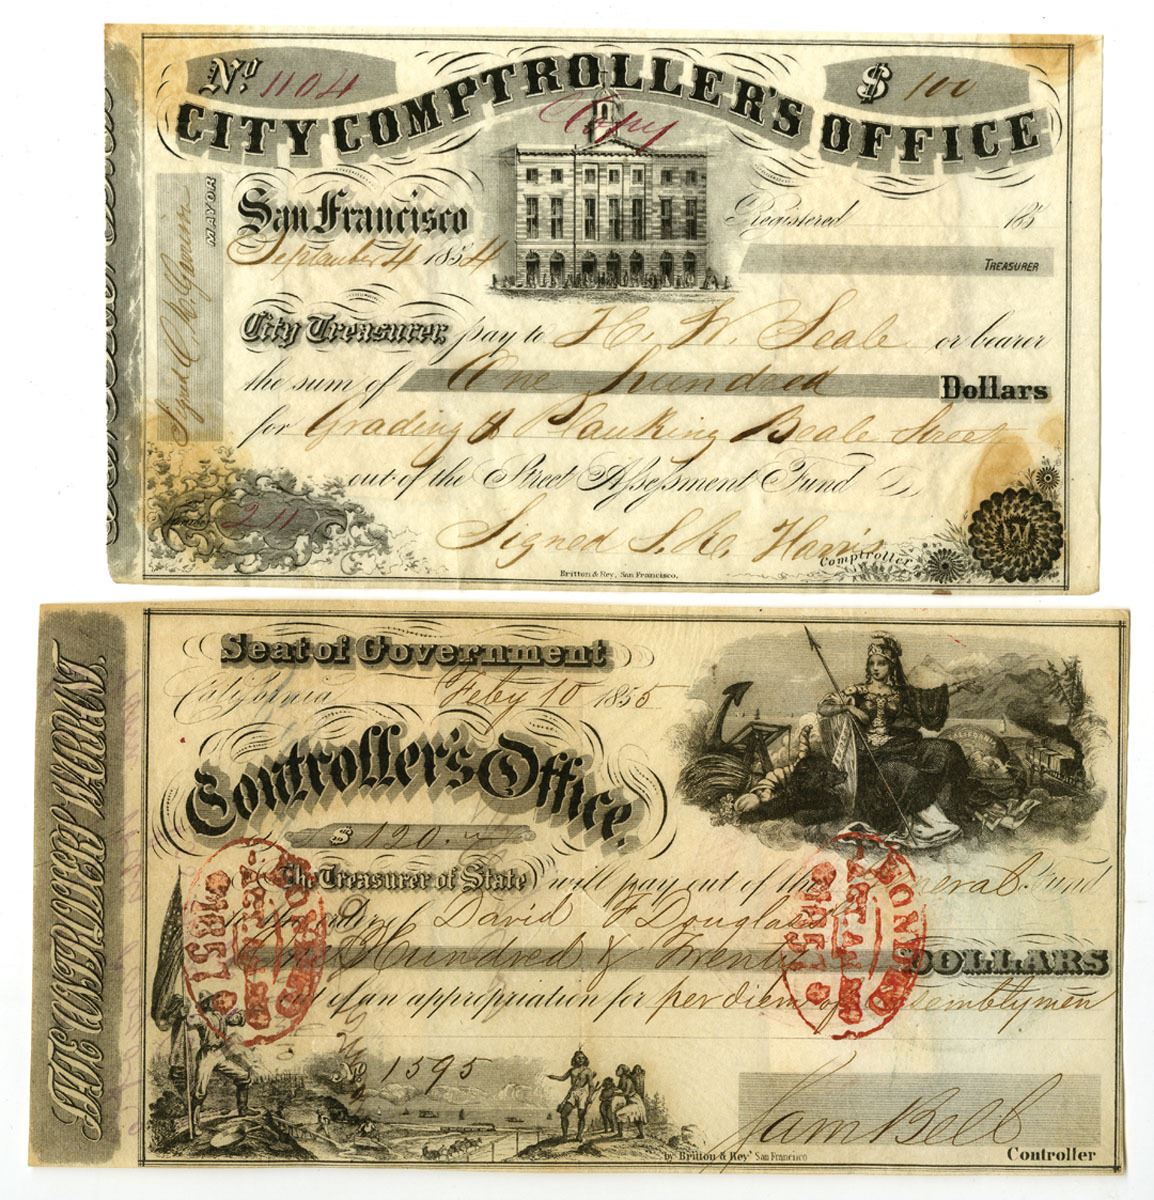 No. 1104
$ 100
CITY COMPTROLLER'S OFFICE
Copy
San Francisco
Registered 185
September 4 1854
TREASURER
MAYOR
City Treasurer, pay to H. W. Seale or bearer
the sum of One hundred Dollars
for Grading & Planking Beale Street
out of the Street Assessment Fund
Signed S. R. Harris
Comptroller
W
Britton & Rey, San Francisco.
THE CONTROLLER'S WARRANT.
Seat of Government
California Feby 10 1855
Controller's Office.
$ 120.
The Treasurer of State will pay out of the General Fund
to the order of David F Douglass
One Hundred & Twenty DOLLARS
out of an appropriation for per diem of Assemblymen
No 1595
Sam Bell
Controller
by Britton & Rey San Francisco